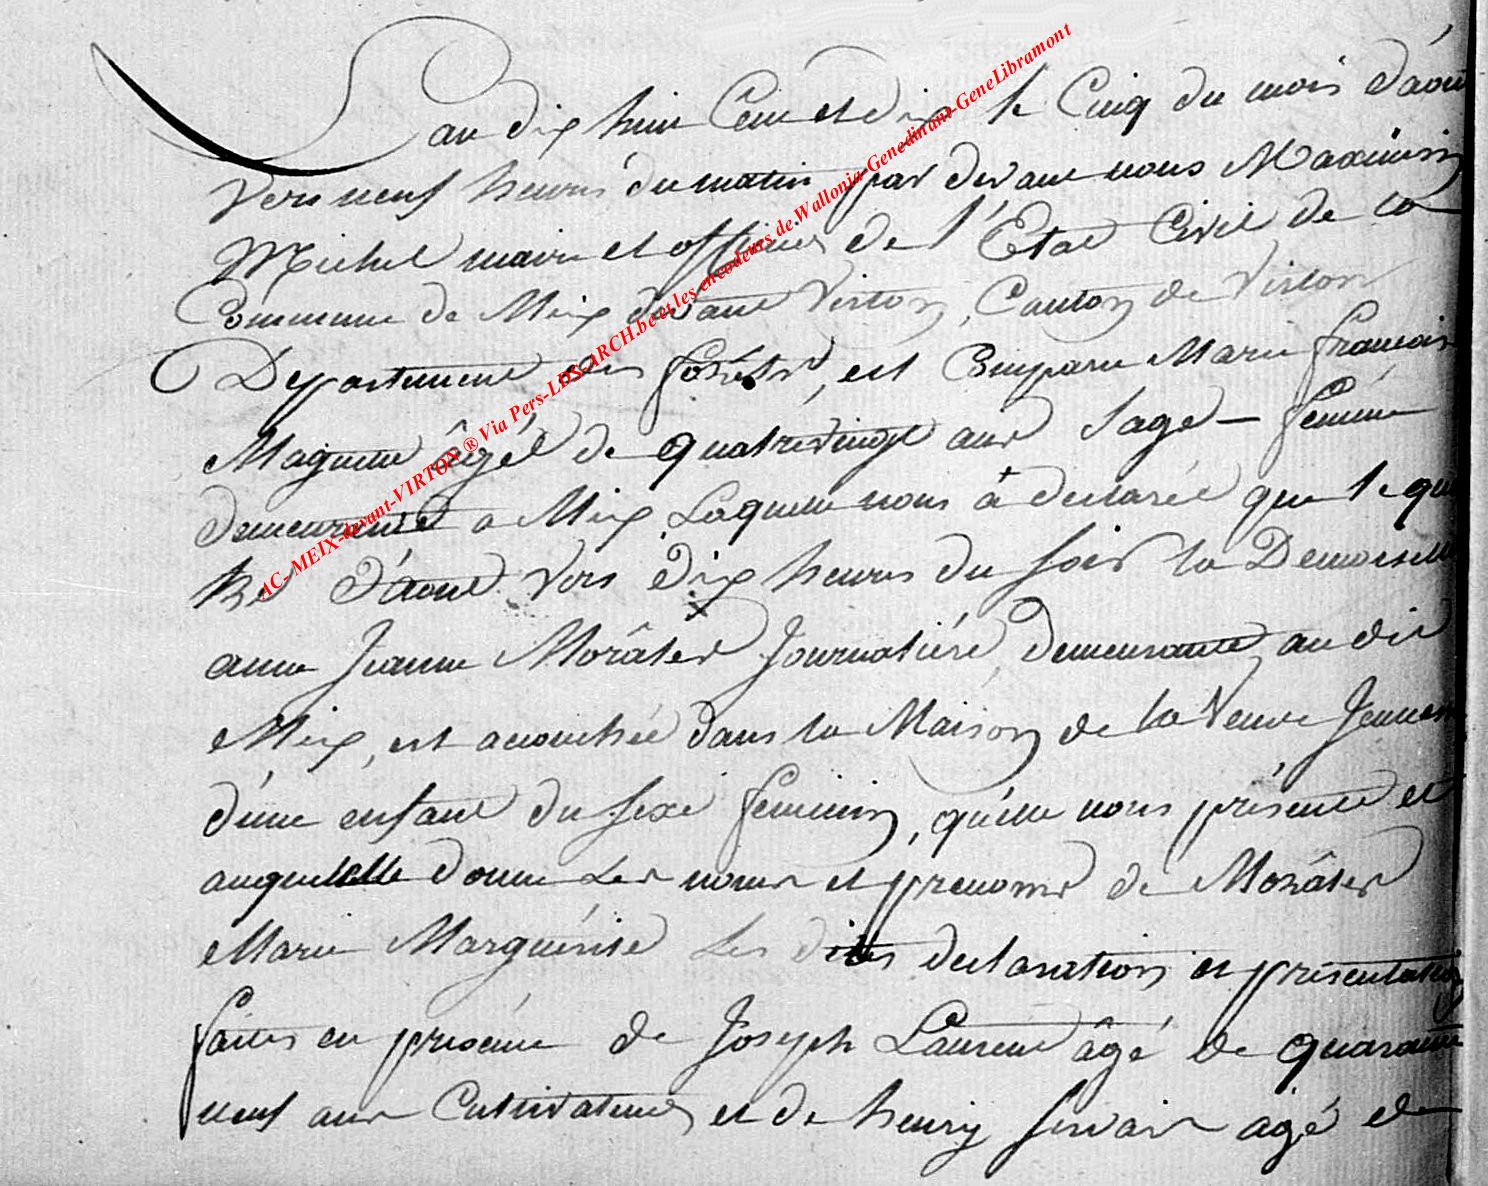 L'an dix huit Cent et dix le Cinq du mois d'aout
vers neuf heures du matin par devant nous Maximin
Michel maire et officier de l'Etat Civil de la
Commune de Meix devant Virton, Canton de Virton
Departement des forêts, est Comparu Marie françoise
Magnette âgée de quatrevingt ans Sage-femme
demeurante a Meix Laquelle nous à declarée que le qua
tre d'aout vers dix heures du soir la Demoiselle
anne Jeanne Morâter Journatiére Demeurante, au dit
Meix, est accouchée dans la Maison de la Veuve
d'une enfant du sexe feminin, qu'elle nous présente et
auquelle donne Les noms et prenoms de Morâter
Marie Marguérite Les dites declaration et présentation
faites en présence de Joseph Laurent âgé de quarante
neuf ans Cultivateur et de henry Servais agé de
AC- MEIX-devant-VIRTON ® Via Pers-LDS-ARCH.be et les encodeurs de Wallonia-Genedinant-GeneLibramont